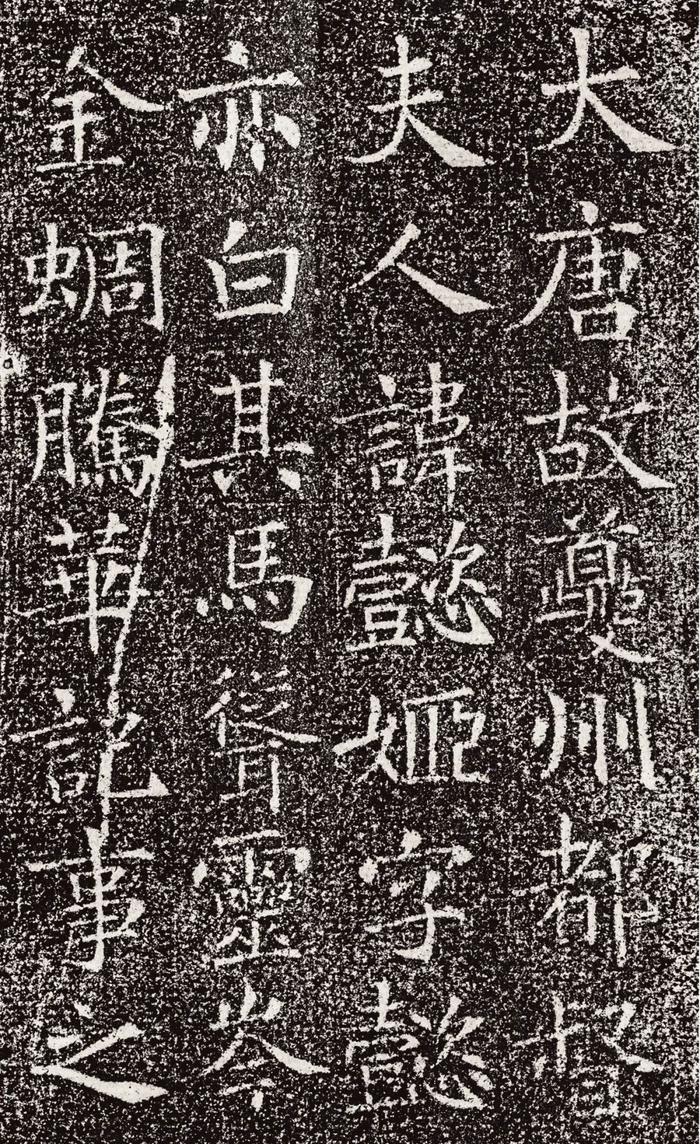 大唐故夔州都督
夫人諱懿姬字懿
亦白其馬靈岑
金蜩騰華記事之